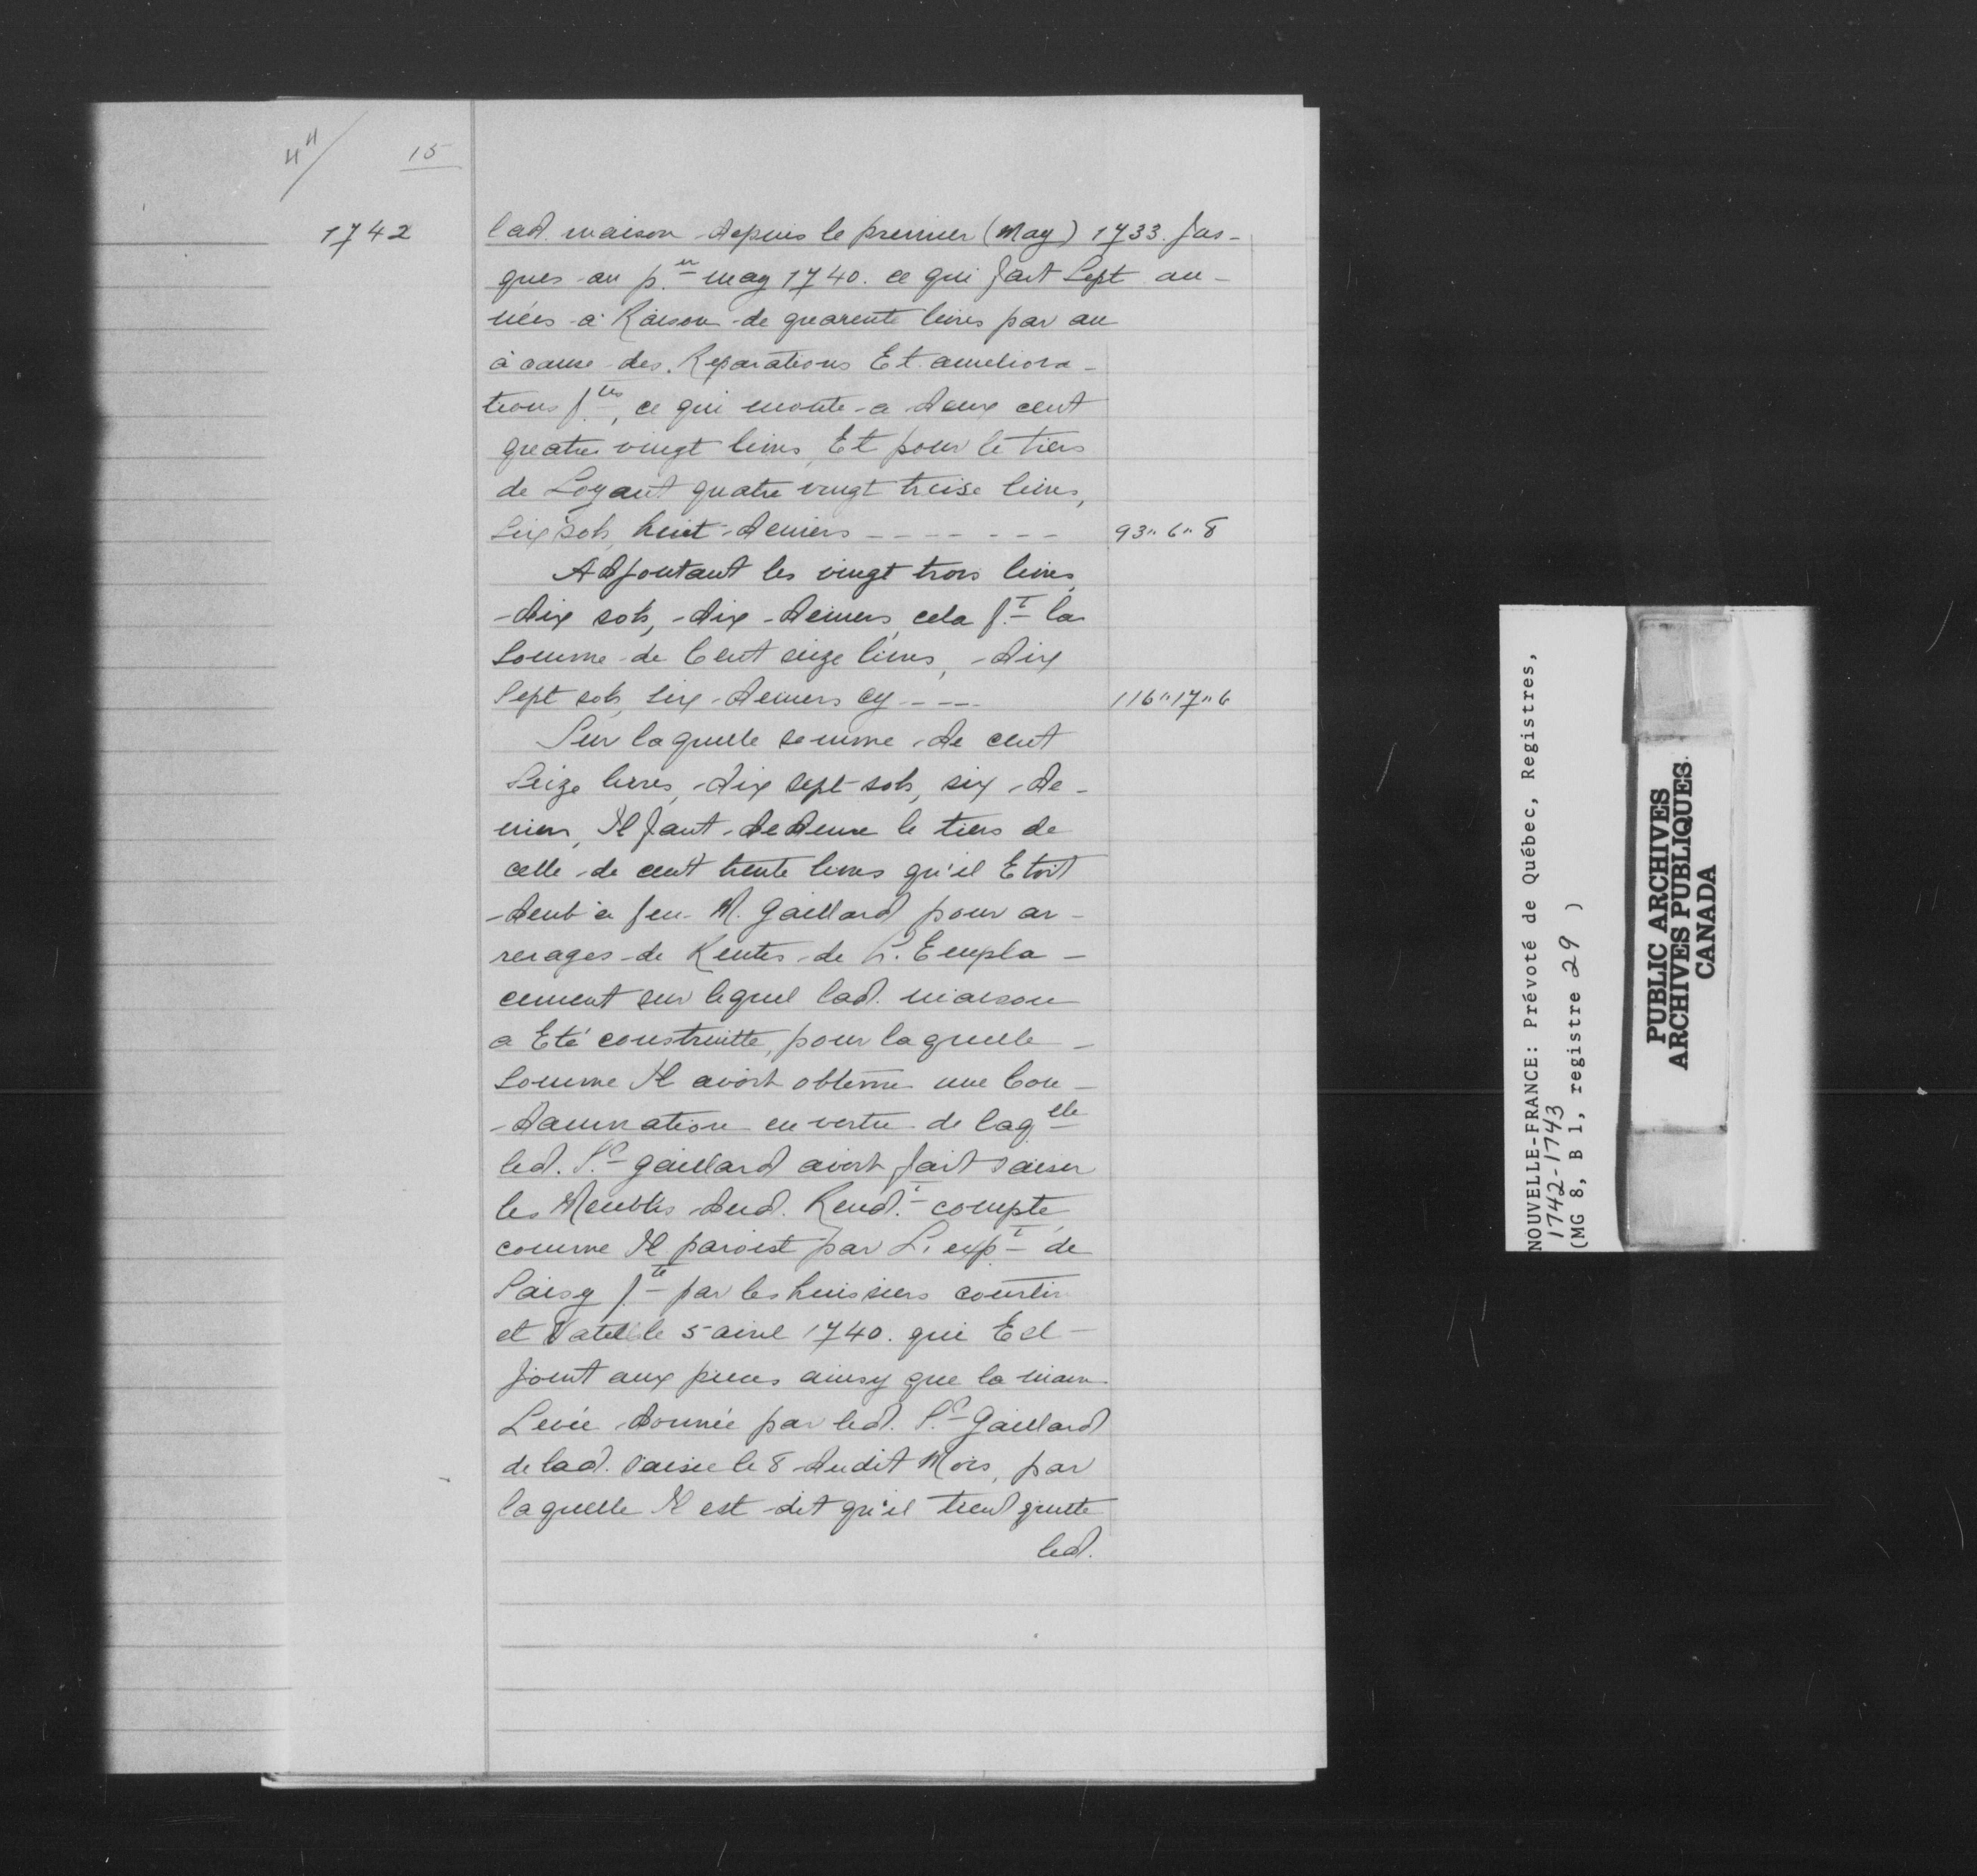 44/ 15
1742
lad. maison depuis le premier (May) 1733. Jus-
ques au p.er may 1740. ce qui fait Sept an-
nées a Raison de quarente livres par an
à cause des Reparations Et ameliora-
tions f.tes, ce qui monte a deux cent
quatre vingt livres, Et pour le tiers
de Loyant quatre vingt treise livres,
Six sols, huit deniers - - - - - - - 93" 6" 8
Adjoutant les vingt trois livres,
dix sols, dix deniers, cela f.t la
Somme de Cent seize livres, dix
Sept sols, six deniers cy - - - - 116" 17" 6
Sur laquelle somme de cent
Seize livres, dix sept sols, six de-
niers, Il faut deduire le tiers de
celle de cent trente livres qu'il Etoit
deub à feu M. Gaillard pour ar-
rerages de Rentes de L. Empla-
cement sur lequel lad. maison
a Eté construitte, pour laquelle
Somme Il avoit obtenu une Con-
damnation en vertu de laq.elle
led. S.r Gaillard avoit fait saisir
les Meubles dud. Rend.t compte,
comme Il paroist par L. exp.t de
Saisy f.te par les huissiers courtin
et Vatel le 5 avril 1740. qui Est
joint aux pieces ainsy que la main
Levée donnée par led. S.r Gaillard
de lad. Saisie le 8 dudit Mois, par
laquelle Il est dit qu'il tient quitte
led.
NOUVELLE-FRANCE: Prévoté de Québec, Registres,
1742-1743
(MG 8, B 1, registre 29 )
PUBLIC ARCHIVES
ARCHIVES PUBLIQUES
CANADA